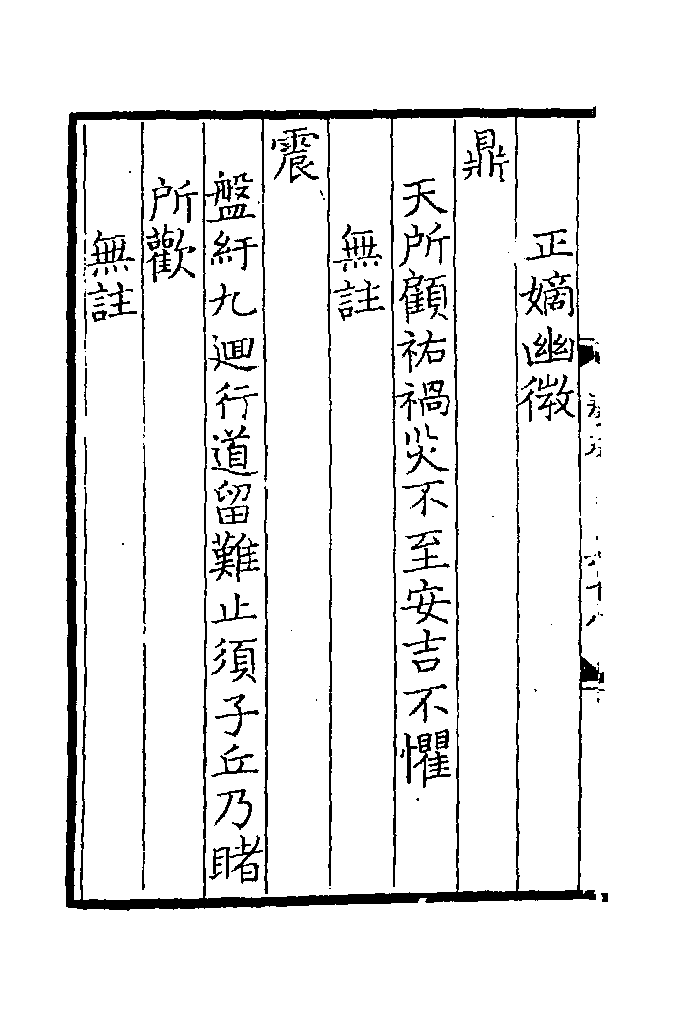 正嫡幽微
鼎
天所顧祐禍災不至安吉不懼
無註
震
盤紆九迴行道留難止須子丘乃睹
所歡
無註